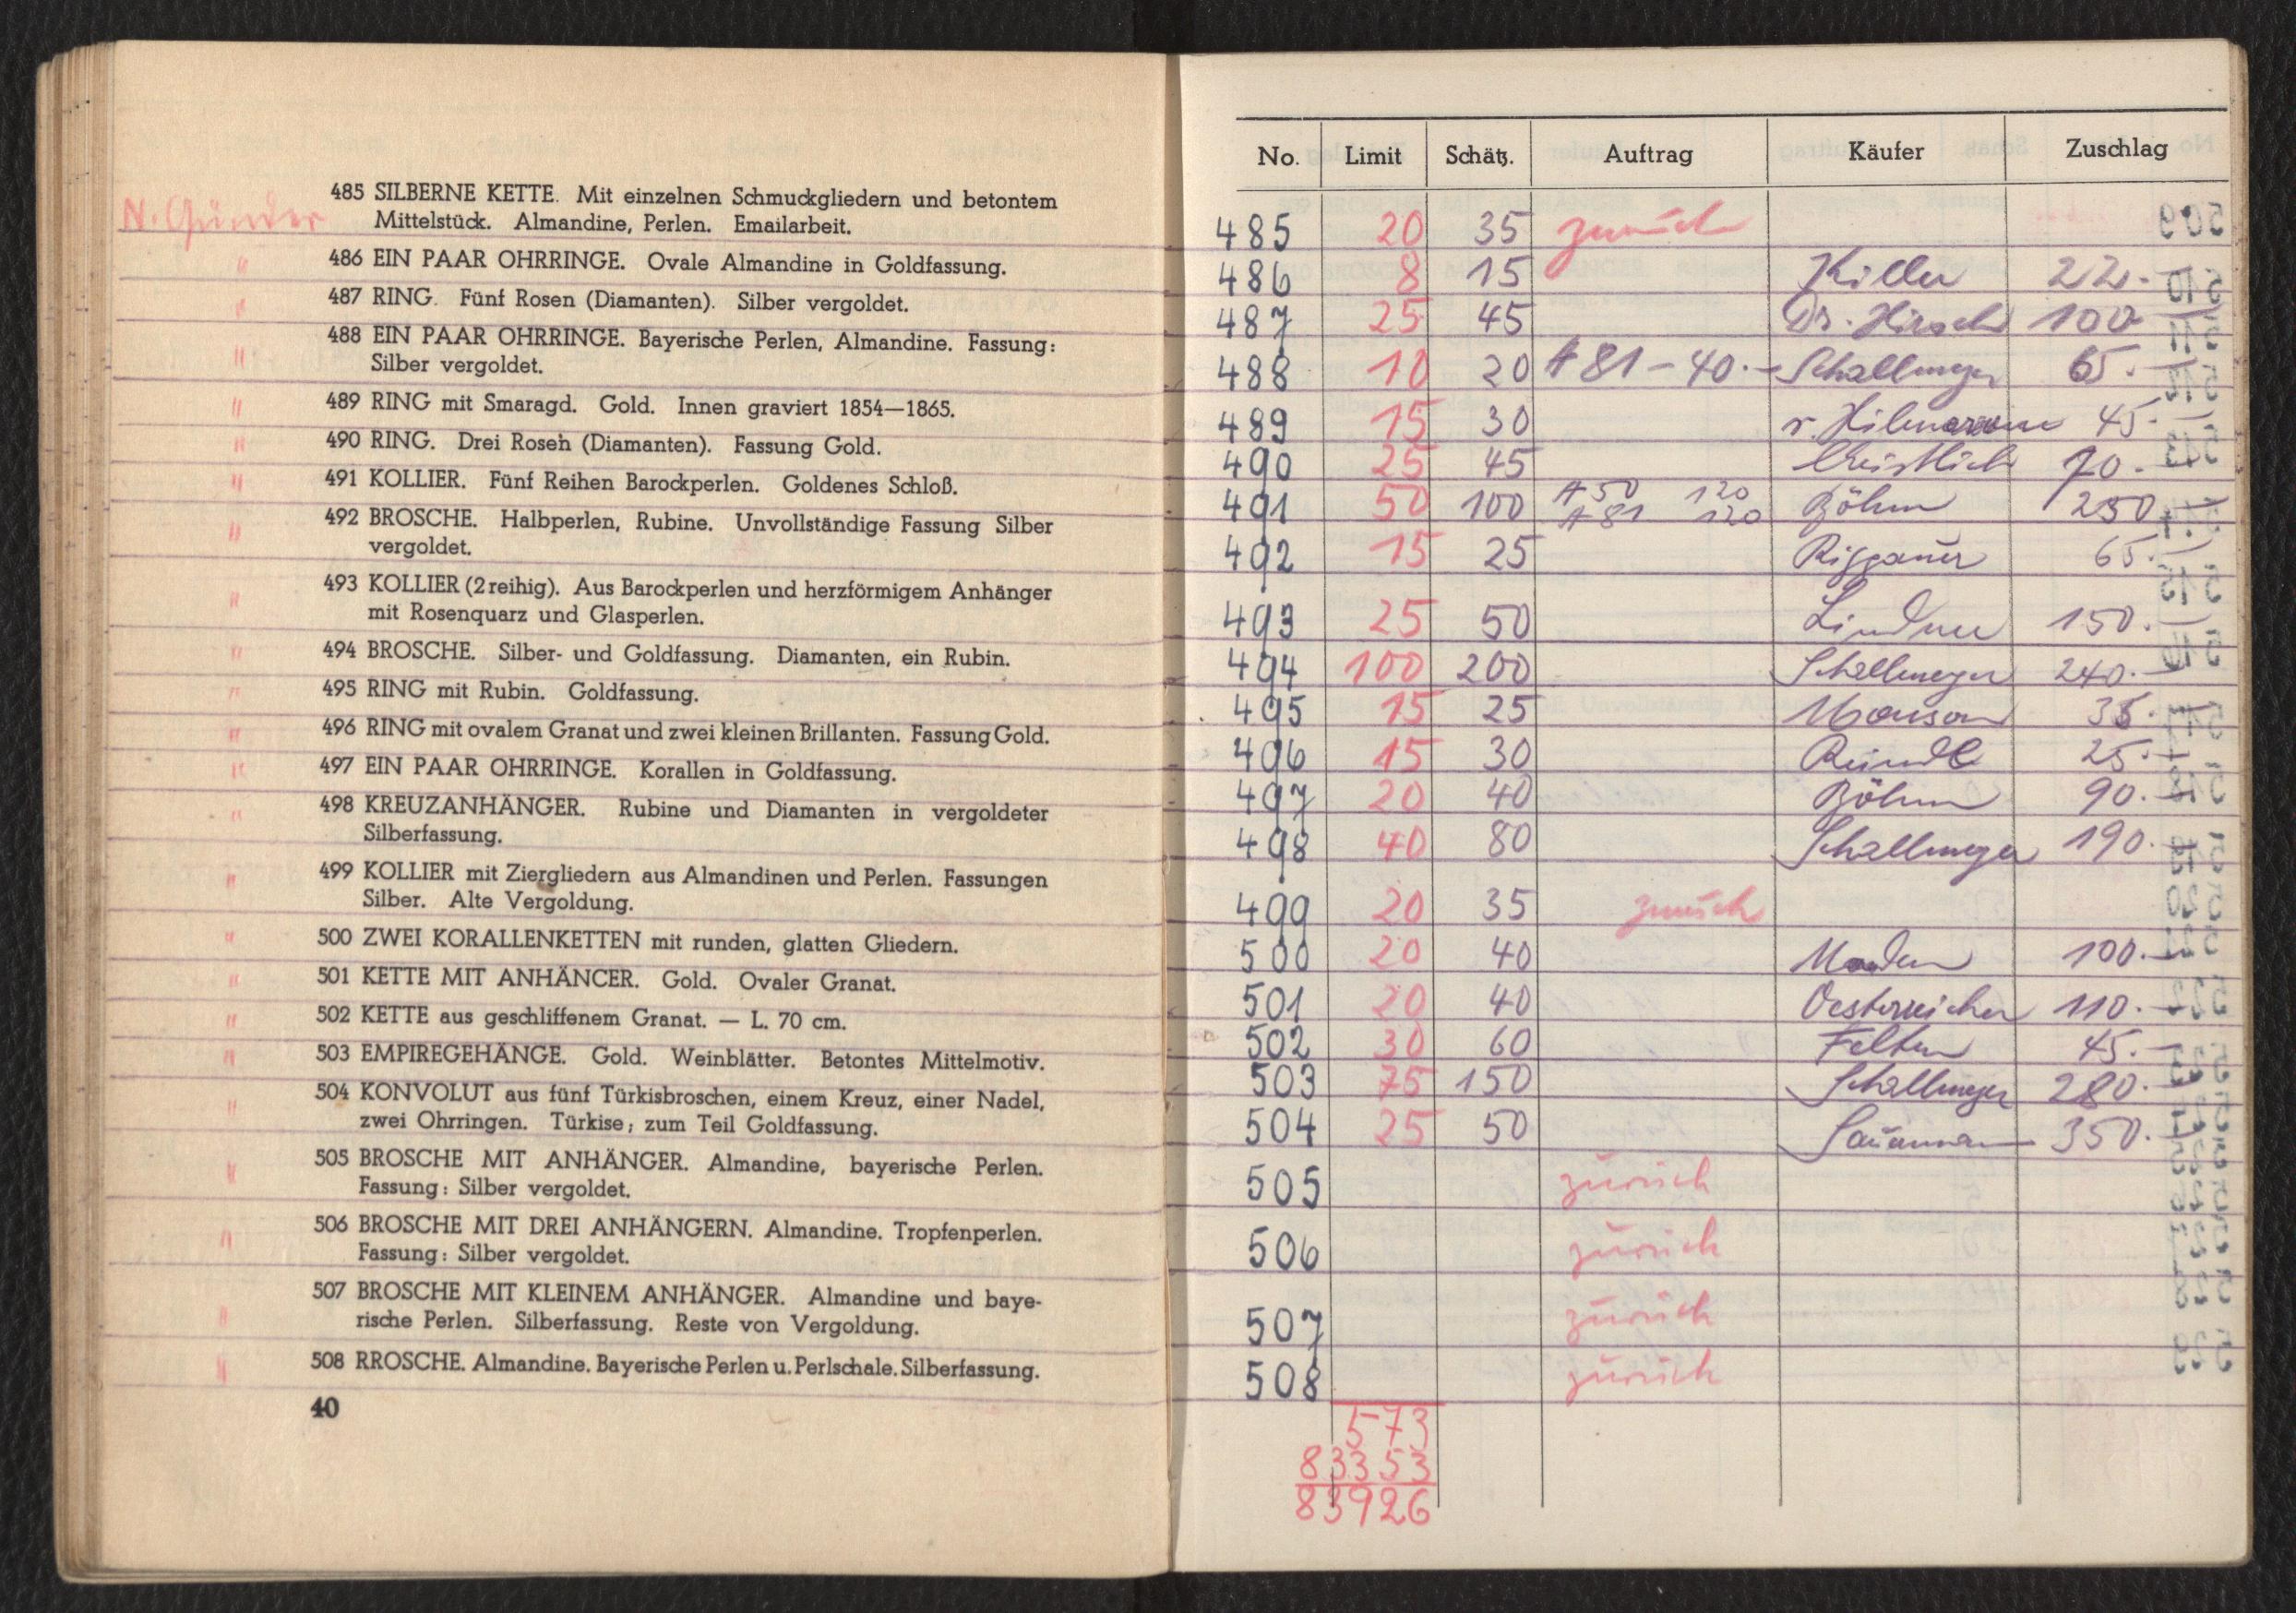 N. Günder
485 SILBERNE KETTE. Mit einzelnen Schmuckgliedern und betontem
Mittelstück. Almandine, Perlen. Emailarbeit.
" 486 EIN PAAR OHRRINGE. Ovale Almandine in Goldfassung.
" 487 RING. Fünf Rosen (Diamanten). Silber vergoldet.
" 488 EIN PAAR OHRRINGE. Bayerische Perlen, Almandine. Fassung:
Silber vergoldet.
" 489 RING mit Smaragd. Gold. Innen graviert 1854—1865.
" 490 RING. Drei Rosen (Diamanten). Fassung Gold.
" 491 KOLLIER. Fünf Reihen Barockperlen. Goldenes Schloß.
" 492 BROSCHE. Halbperlen, Rubine. Unvollständige Fassung Silber
vergoldet.
" 493 KOLLIER (2reihig). Aus Barockperlen und herzförmigem Anhänger
mit Rosenquarz und Glasperlen.
" 494 BROSCHE. Silber- und Goldfassung. Diamanten, ein Rubin.
" 495 RING mit Rubin. Goldfassung.
" 496 RING mit ovalem Granat und zwei kleinen Brillanten. Fassung Gold.
" 497 EIN PAAR OHRRINGE. Korallen in Goldfassung.
" 498 KREUZANHÄNGER. Rubine und Diamanten in vergoldeter
Silberfassung.
" 499 KOLLIER mit Ziergliedern aus Almandinen und Perlen. Fassungen
Silber. Alte Vergoldung.
" 500 ZWEI KORALLENKETTEN mit runden, glatten Gliedern.
" 501 KETTE MIT ANHÄNCER. Gold. Ovaler Granat.
" 502 KETTE aus geschliffenem Granat. — L. 70 cm.
" 503 EMPIREGEHÄNGE. Gold. Weinblätter. Betontes Mittelmotiv.
" 504 KONVOLUT aus fünf Türkisbroschen, einem Kreuz, einer Nadel,
zwei Ohrringen. Türkise; zum Teil Goldfassung.
" 505 BROSCHE MIT ANHÄNGER. Almandine, bayerische Perlen.
Fassung: Silber vergoldet.
" 506 BROSCHE MIT DREI ANHÄNGERN. Almandine. Tropfenperlen.
Fassung: Silber vergoldet.
" 507 BROSCHE MIT KLEINEM ANHÄNGER. Almandine und baye-
rische Perlen. Silberfassung. Reste von Vergoldung.
" 508 RROSCHE. Almandine. Bayerische Perlen u. Perlschale. Silberfassung.
40
No. Limit Schätz. Auftrag Käufer Zuschlag
485 20 35 zurück
486 8 15 Killer 22.-
487 25 45 Dr. Hirsch 100
488 10 20 # 81 - 40.- Schallmeyer 65.-
489 15 30 45.-
490 25 45 70.-
491 50 100 # 50 120 Böhm 250
# 81 120
492 15 25 Riggauer 65.-
493 25 50 Lindner 150.-
494 100 200 Schallmeyer 240.-
495 15 25 35.-
496 15 30 Reindl 25.-
497 20 40 Böhm 90.-
498 40 80 Schallmeyer 190.-
499 20 35 zurück
500 20 40 100.-
501 20 40 Oesterreicher 110.-
502 30 60 Felten 45.-
503 75 150 Schallmeyer 280.-
504 25 50 350.-
505 zurück
506 zurück
507 zurück
508 zurück
573
83353
83926